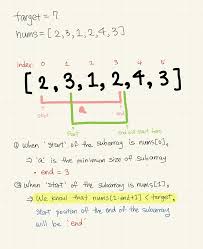 target = 7
nums = [ 2, 3, 1, 2, 4, 3 ]
index: 0 1 2 3 4 5
[ 2, 3, 1, 2, 4, 3 ]
start
a
end
start
end will start here
① when 'start' of the subarray is nums[0],
→ 'a' is the minimum size of subarray
• end = 3
② when 'start' of the subarray is nums[1],
→ We know that nums[1:end+1] < target,
start position of the end of the subarray
will be 'end'